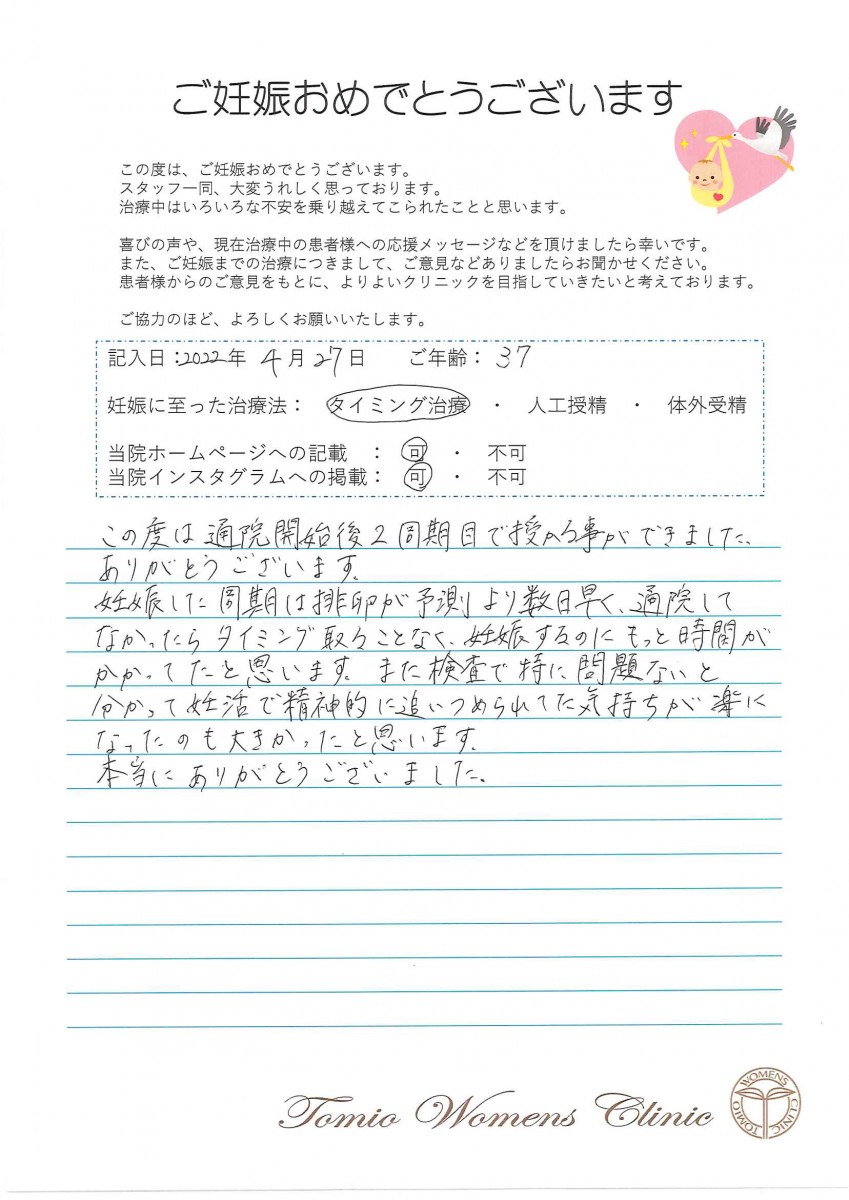 ご妊娠おめでとうございます
この度は、ご妊娠おめでとうございます。
スタッフ一同、大変うれしく思っております。
治療中はいろいろな不安を乗り越えてこられたことと思います。
喜びの声や、現在治療中の患者様への応援メッセージなどを頂けましたら幸いです。
また、ご妊娠までの治療につきまして、ご意見などありましたらお聞かせください。
患者様からのご意見をもとに、よりよいクリニックを目指していきたいと考えております。
ご協力のほど、よろしくお願いいたします。
記入日：2022年 4月27日 ご年齢：37
妊娠に至った治療法： タイミング治療 ・ 人工授精 ・ 体外受精
当院ホームページへの記載 ： 可 ・ 不可
当院インスタグラムへの掲載： 可 ・ 不可
この度は通院開始後2周期目で授かる事ができました。
ありがとうございます。
妊娠した周期は排卵が予測より数日早く、通院して
なかったらタイミング取ることなく、妊娠するのにもっと時間が
かかってたと思います。また検査で特に問題ないと
分かって妊活で精神的に追いつめられてた気持ちが楽に
なったのも大きかったと思います。
本当にありがとうございました。
Tomio Womens Clinic
TOMIO WOMENS CLINIC